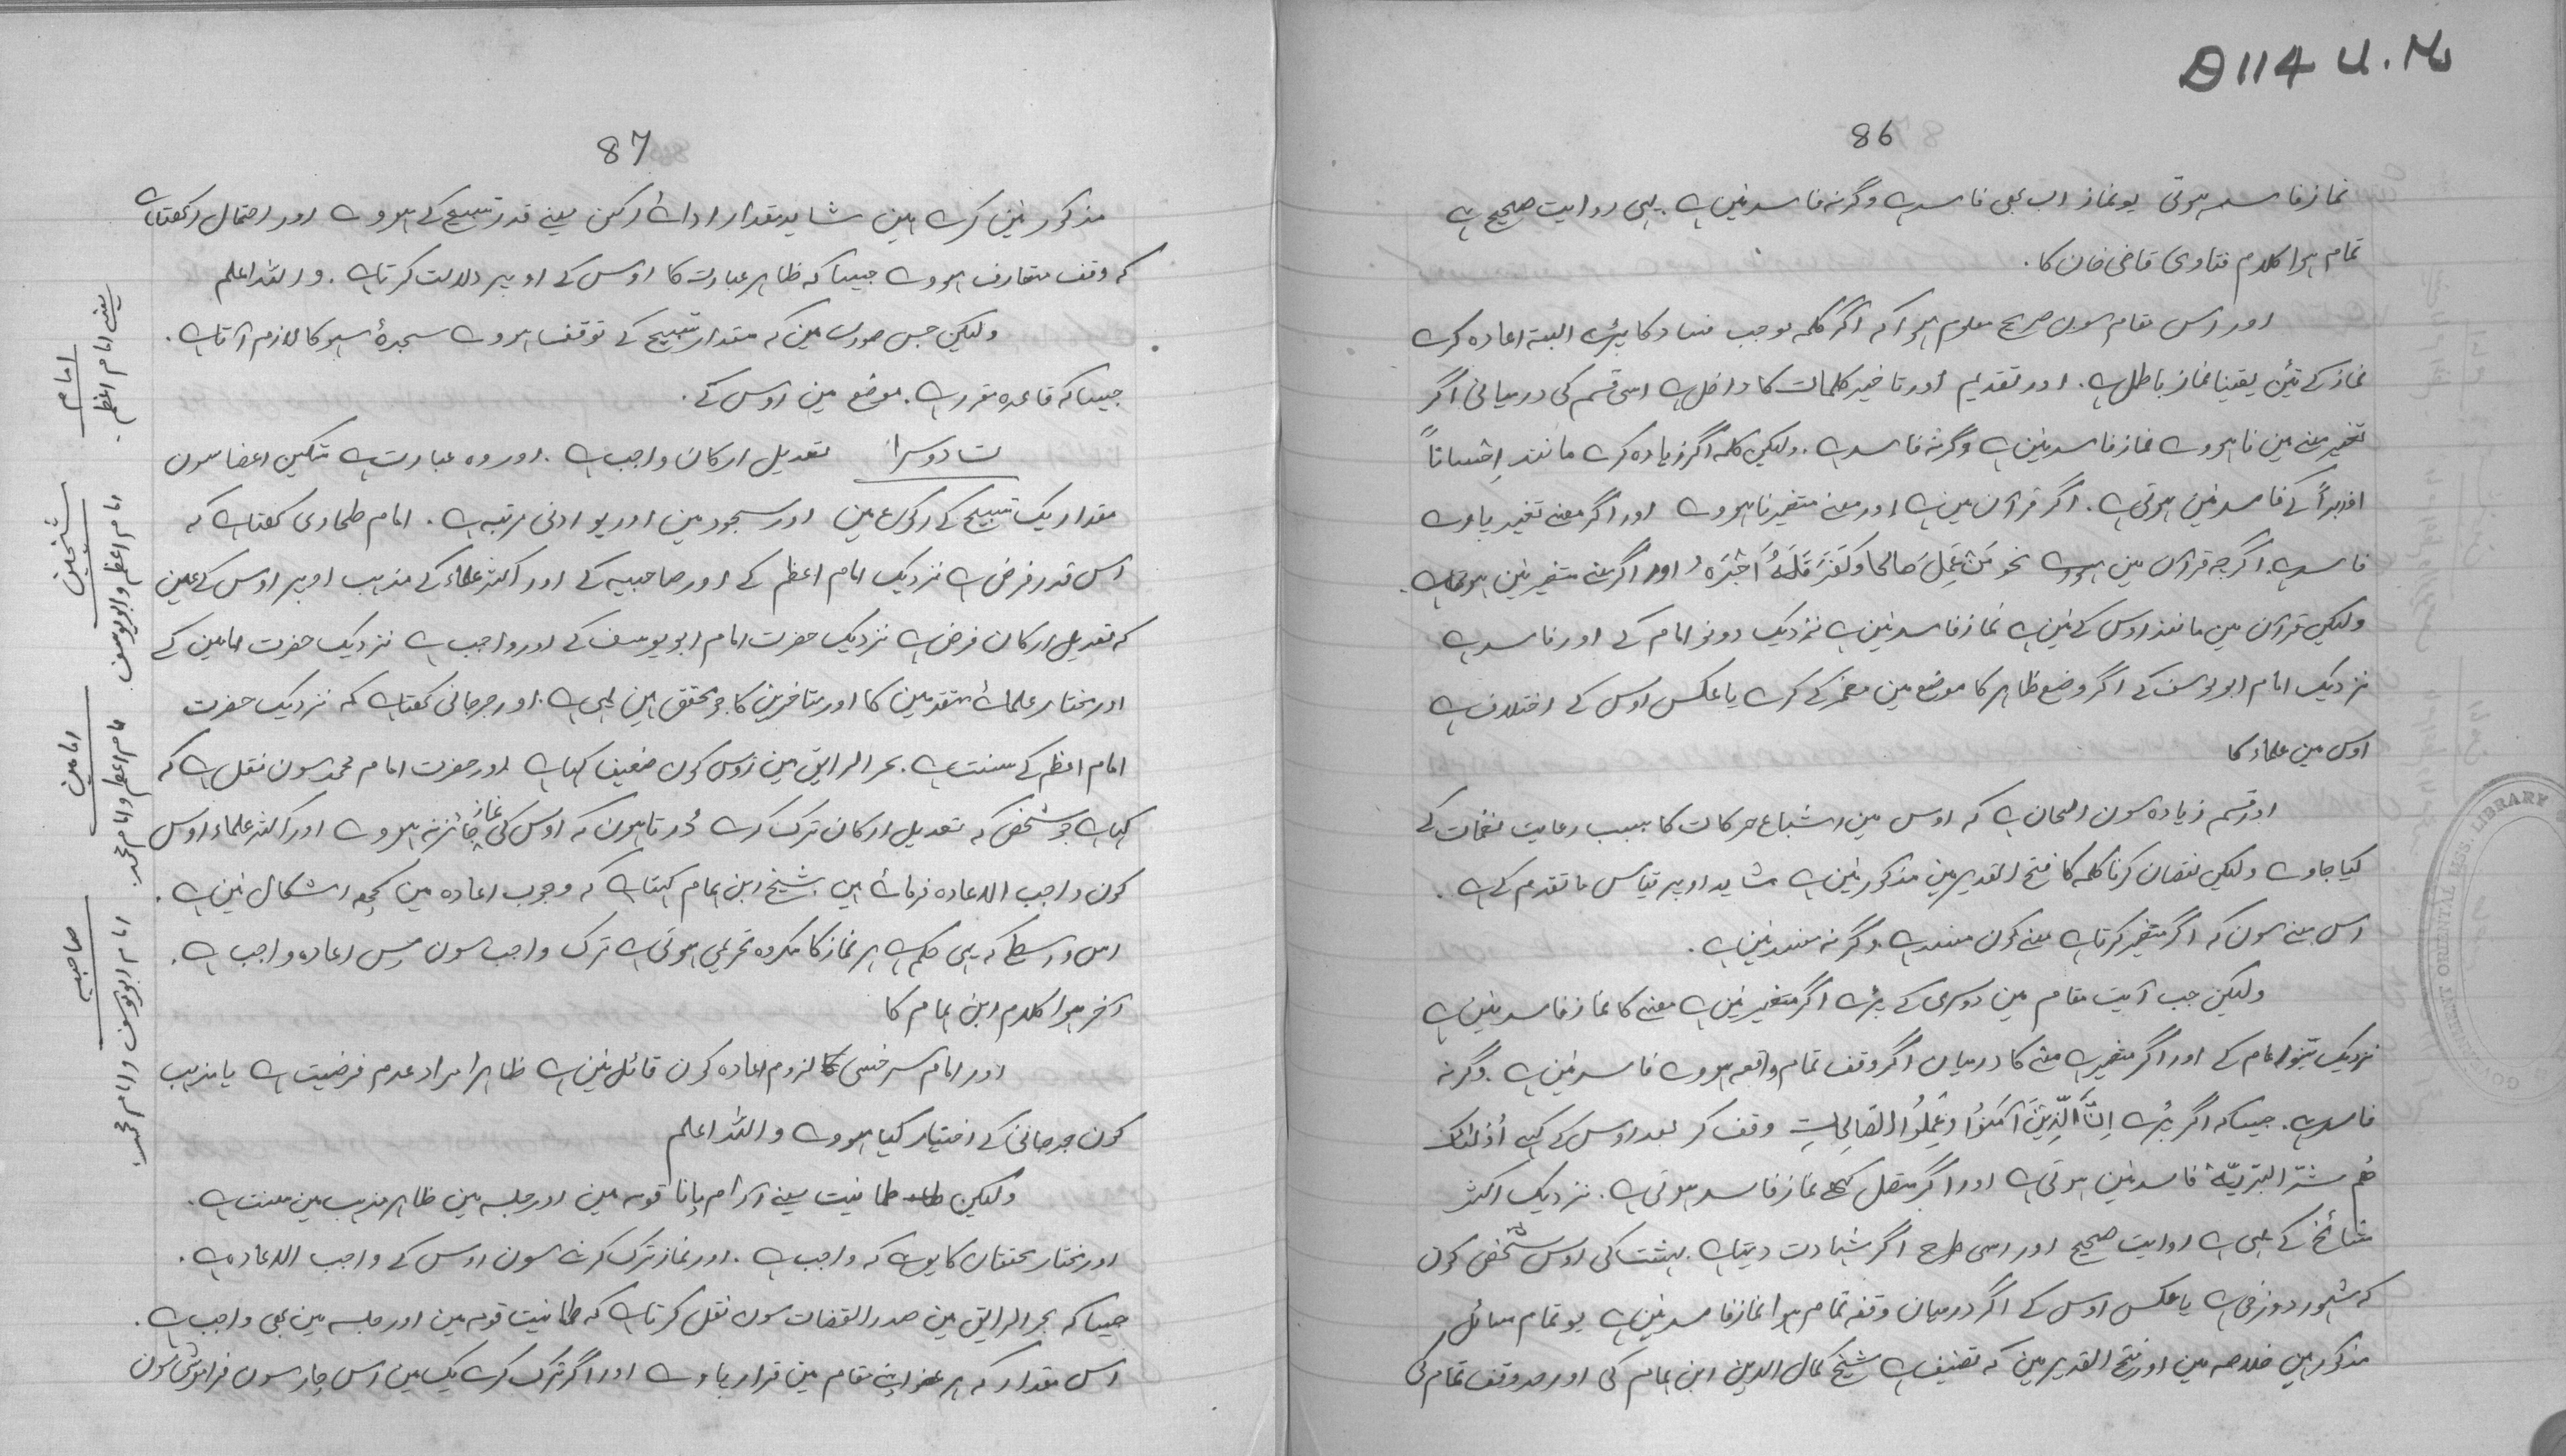 D 114 U. Ms
86
نماز فاسد ہوتی یو نماز اب بھی فاسد ہے وگرنہ فاسد نیں ہے. یہی روایت صحیح ہے
تمام ہوا کلام فتاوی قاضی خان کا.
اور اس مقام سوں صریح معلوم ہوا کہ اگر کلمہ موجب فساد کا پڑے البتہ اعادہ کرے
نماز کے تئیں یقینا نماز باطل ہے. اور تقدیم اور تاخیر کلمات کا داخل ہے اسی قسم کی درمیانی اگر
تغیر معنے میں نا ہووے نماز فاسد نیں ہے وگرنہ فاسد ہے. ولیکن کلمہ اگر زیادہ کرے مانند احساناً
کے فاسد نیں ہوتی ہے. اگر قرآن میں ہے اور معنے متغیر نا ہووے اور اگر معنے تغیر پاوے
فاسد ہے. اگرچہ قرآن میں ہووے نحو مَنْ عَمِلَ صالحا وَكَفَرَ فَلَهُ أَجْرُهُ اور اگر معنے متغیر نیں ہوتا ہے.
ولیکن قرآن میں مانند اوس کے نیں ہے نماز فاسد نیں ہے نزدیک دونو امام کے اور فاسد ہے
نزدیک امام ابو یوسف کے اگر وضع ظاہر کا موضع میں مضمر کے کرے یا عکس اوس کے اختلاف ہے
اوس میں علماء کا
اور قسم زیادہ سوں الحان ہے کہ اوس میں اشباع حرکات کا بسبب رعایت نغمات کے
کیا جاوے ولیکن نقصان کرنا کلمہ کا فتح القدیر میں مذکور نیں ہے شاید اوپر قیاس ما تقدم کے ہے.
اس معنے سوں کہ اگر متغیر کرتا ہے معنے کوں مفسد ہے وگرنہ مفسد نیں ہے.
ولیکن جب آیت مقام میں دوسری کے پڑے اگر متغیر نیں ہے معنے کا نماز فاسد نیں ہے
نزدیک تینو امام کے اور اگر متغیر ہے معنے کا درمیان اگر وقف تمام واقعہ ہووے فاسد نیں ہے. وگرنہ
فاسد ہے. جیسا کہ اگر پڑے اِنَّ الَّذِيْنَ آمَنُوْا وَعَمِلُوْا الصَّالِحَاتِ وقف کر بعد اوس کے کہے أُوْلٰئِكَ
هُم شَرُّ البَرِيَّة فاسد نیں ہوتی ہے اور اگر متصل کہے نماز فاسد ہوتی ہے. نزدیک اکثر
مشائخ کے یہی ہے روایت صحیح اور اسی طرح اگر شہادت دیتا ہے بہشت کی اوس شخص کوں
کہ مشہور دوزخی ہے یا عکس اوس کے اگر درمیان وقف تمام ہوا نماز فاسد نیں ہے یو تمام مسائل
مذکور ہیں خلاصہ میں اور فتح القدیر میں کہ تصنیف ہے شیخ کمال الدین ابن ہمام کی اور حد وقف تمام کی
87
مذکور نیں کرے ہیں شاید مقدار ادائے رکن یعنے قدر تسبیح کے ہووے اور احتمال رکھتا ہے
کہ وقف متعارف ہووے جیسا کہ ظاہر عبارت کا اوس کے اوپر دلالت کرتا ہے. واللہ اعلم
ولیکن جس صورت میں کہ مقدار تسبیح کے توقف ہووے سجدۂ سہو کا لازم آتا ہے.
جیسا کہ قاعدہ مقرر ہے. موضع میں اوس کے.
سات دوسرا تعدیل ارکان واجب ہے. اور وہ عبارت ہے تسکین اعضا سوں
مقدار یک تسبیح کے رکوع میں اور سجود میں اور یو ادنی مرتبہ ہے. امام طحاوی کہتا ہے کہ
اس قدر فرض ہے نزدیک امام اعظم کے اور صاحبیہ کے اور اکثر علماء کے مذہب اوپر اوس کے ہیں
کہ تعدیل ارکان فرض ہے نزدیک حضرت امام ابو یوسف کے اور واجب ہے نزدیک حضرت امامین کے
اور مختار علمائے متقدمین کا اور متاخرین کا جو محقق ہیں یہی ہے. اور جرجانی کہتا ہے کہ نزدیک حضرت
امام اعظم کے سنت ہے. بحر الرایق میں اوس کوں ضعیف کہا ہے اور حضرت امام محمد سوں نقل ہے کہ
کہا ہے جو شخص کہ تعدیل ارکان ترک کرے ڈرتا ہوں کہ اوس کی نماز جائز نہ ہووے اور اکثر علماء اوس
کوں واجب الاعادہ فرمائے ہیں. شیخ ابن ہمام کہتا ہے کہ وجوب اعادہ میں کچھ اشکال نیں ہے.
اس واسطے کہ یہی حکم ہے ہر نماز کا مکروہ تحریمی ہوتی ہے ترک واجب سوں پس اعادہ واجب ہے.
آخر ہوا کلام ابن ہمام کا
اور امام سرخسی کا لزوم اعادہ کوں قائل نیں ہے ظاہرا مراد عدم فرضیت ہے یا مذہب
کوں جرجانی کے اختیار کیا ہووے واللہ اعلم
ولیکن طمانیت یعنے آرام پانا قومہ میں اور جلسہ میں ظاہر مذہب میں سنت ہے.
اور مختار محققاں کا یو ہے کہ واجب ہے. اور نماز ترک کرنے سوں اوس کے واجب الاعادہ ہے.
جیسا کہ بحر الرایق میں صدر القضات سوں نقل کرتا ہے کہ طمانیت قومہ میں اور جلسہ میں بھی واجب ہے.
اس مقدار کہ ہر عضو اپنے مقام میں قرار پاوے اور اگر ترک کرے یک میں اس چار سوں فراموشی سوں
امام
یعنے امام اعظم.
شیخین
امام اعظم وابو یوسف.
امامین
امام اعظم وامام محمد.
صاحبیہ
امام ابو یوسف وامام محمد.
GOVERNMENT ORIENTAL MSS. LIBRARY